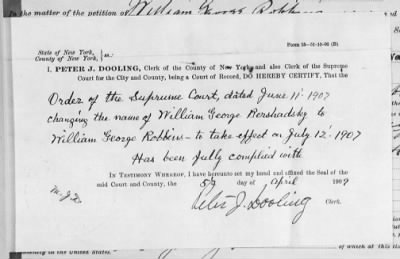 In the matter of the petition of William George Robbins
Form 28—
State of New York,
County of New York, ss.:
I, PETER J. DOOLING, Clerk of the County of New York and also Clerk of the Supreme
Court for the City and County, being a Court of Record, DO HEREBY CERTIFY, That the
Order of the Supreme Court, dated June 11" 1907
changing the name of William George Rershadsky to
William George Robbins - to take effect on July 12" 1907
Has been fully complied with
IN TESTIMONY WHEREOF, I have hereunto set my hand and affixed the Seal of the
said Court and County, the 5th day of April 1909
Peter J. Dooling Clerk.
in the United States.
of which at this